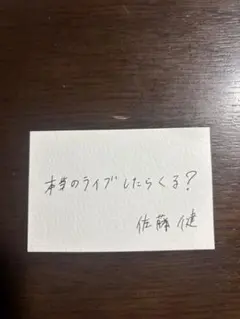 本当のライブしたらくる?
佐藤健